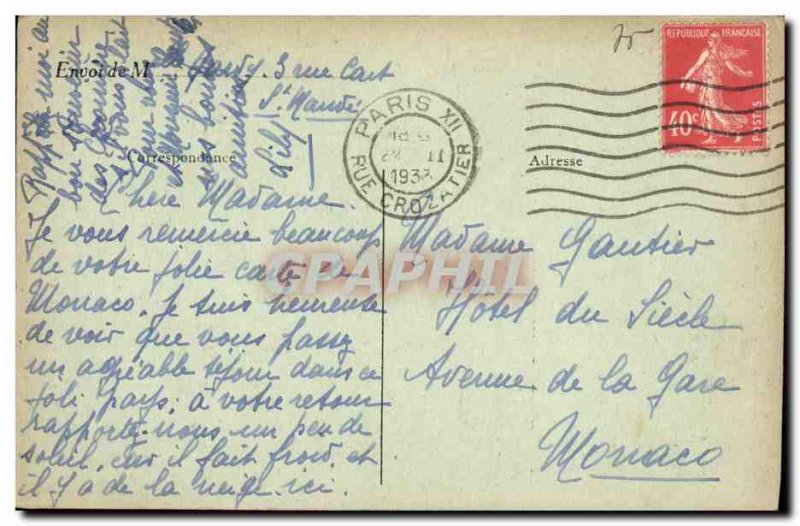 Envoi de M
3 rue Cart
St Mandé
Correspondance
Chère Madame.
Je vous remercie beaucoup
de votre jolie carte de
Monaco. Je suis heureuse
de voir que vous passez
un agréable séjour dans ce
joli pays; à votre retour
rapportez-nous un peu de
soleil, car il fait froid et
il y a de la neige ici.
bon souvenir
amitiés
Lily
RÉPUBLIQUE FRANÇAISE
40c
POSTES
PARIS XII
II
1933
RUE CROZATIER
Adresse
Madame Gautier
Hôtel du Siècle
Avenue de la Gare
Monaco
CPAPHIL